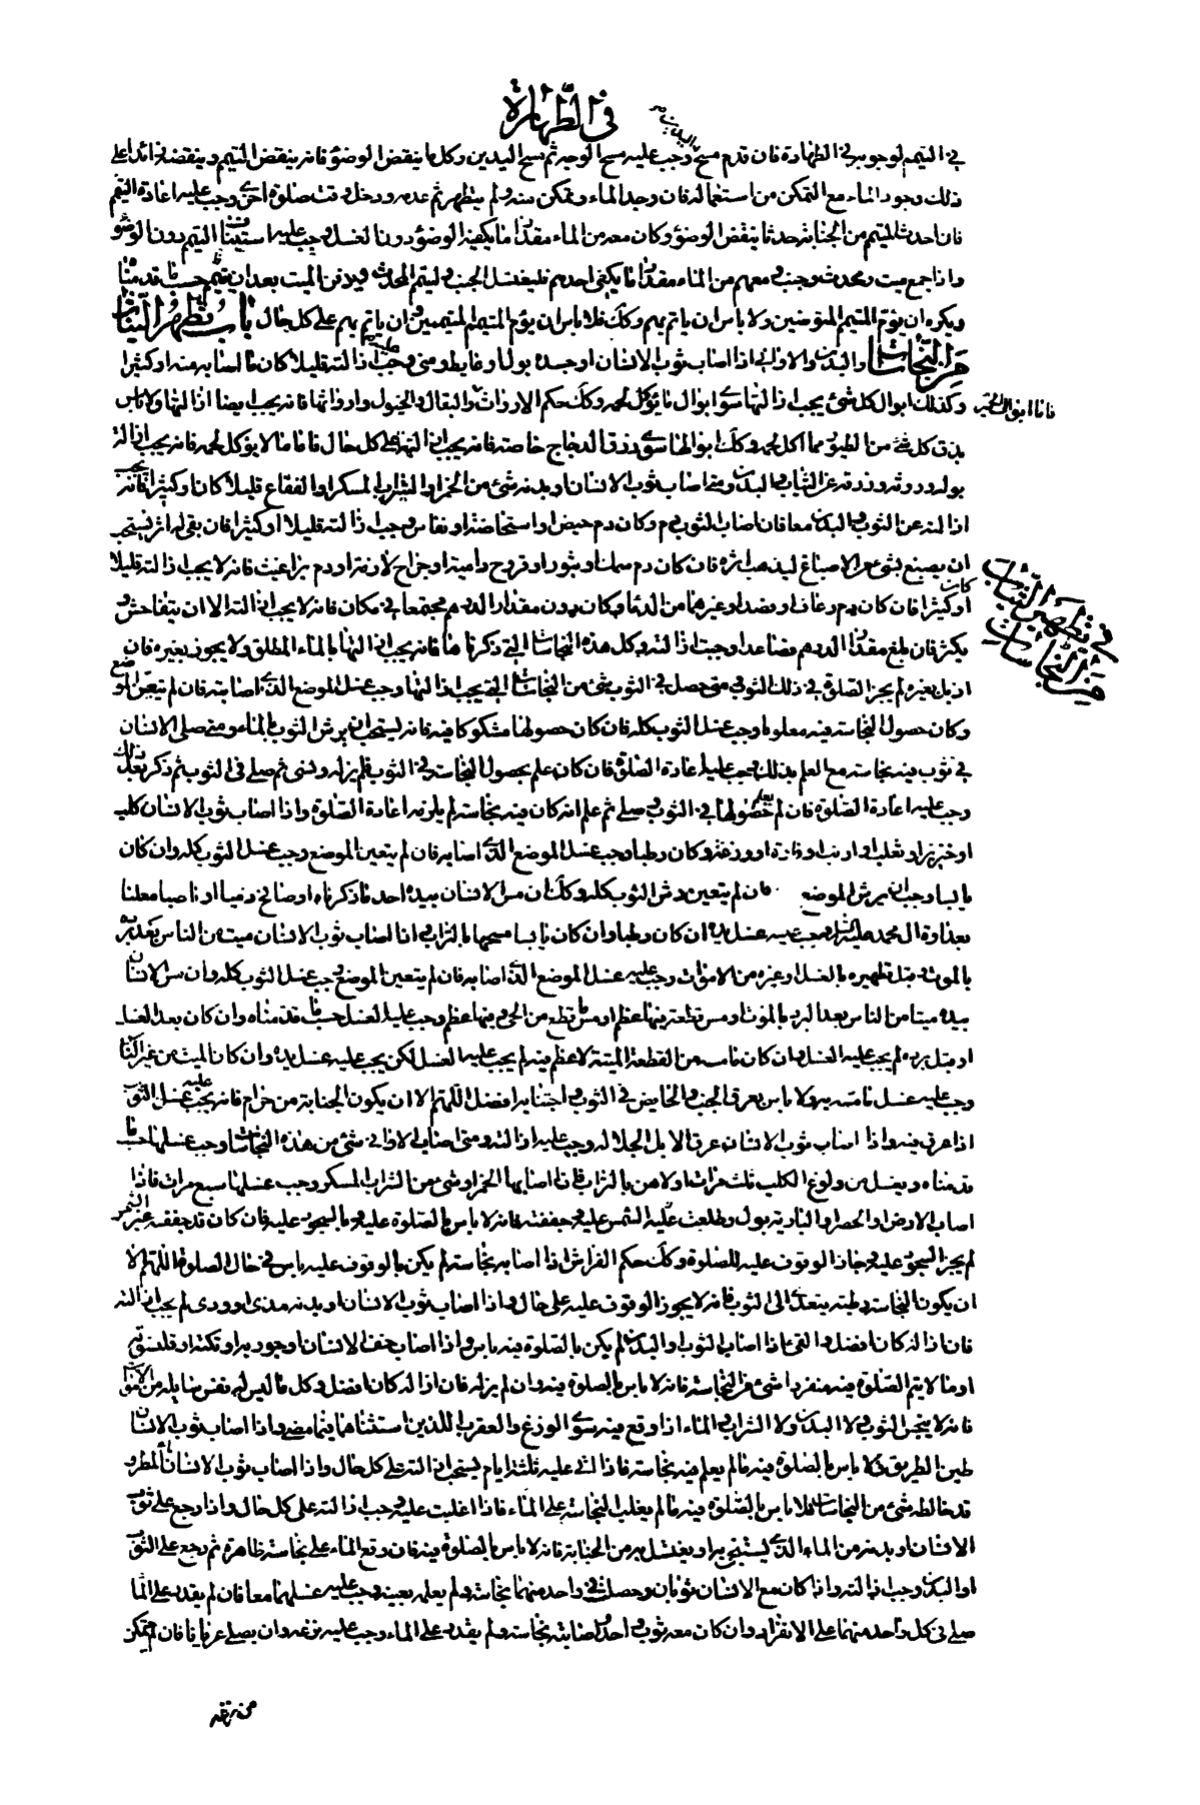 في الطهارة
في التيمم لوجوبه في الطهارة فان قدم مسح وجب عليه مسح الوجه ثم مسح اليدين وكل ما ينقض الوضوء فانه ينقض التيمم وينقضه زائدا على
ذلك وجود الماء مع التمكن من استعماله فان وجد الماء وتمكن منه ولم يتطهر ثم عدمه ودخل وقت صلوة اخرى وجب عليه اعادة التيمم
فان احدث المتيمم من الجنابة حدثا ينقض الوضوء وكان معه من الماء مقدار ما يكفيه الوضوء دون الغسل وجب عليه استيناف التيمم دون الوضوء
واذا اجتمع ميت ومحدث وجنب ومعهم من الماء مقدار ما يكفي احدهم فليغتسل الجنب وليتيمم المحدث ويدفن الميت بعد ان يتيمم حسب ما قدمناه
ويكره ان يؤم المتيمم المتوضئين ولا باس ان ياتم بهم وكذلك فلا باس ان يؤم المتيمم المتيممين وان ياتم بهم على كل حال باب تطهير الثياب
من النجاسات والبدن والاواني اذا اصاب ثوب الانسان او جسده بول او غايط او مني وجب عليه ازالته قليلا كان ما اصابه منه او كثيرا
وكذلك ابوال كل شئ يجب ازالتها سوى ابوال ما يؤكل لحمه وكذلك حكم الارواث والبغال والخيول وارواثها فانه يجب ايضا ازالتها ولا باس
فاما ابوال الحمير
بذرق كل شئ من الطيور مما اكل لحمه وكذلك ابوالها سوى ذرق الدجاج خاصة فانه يجب ازالته على كل حال فاما ما لا يؤكل لحمه فانه يجب ازالة
بوله وروثه وذرقه عن الثياب والبدن ومتى اصاب ثوب الانسان او بدنه شئ من الخمر او الشراب المسكر او الفقاع قليلا كان او كثيرا فانه يجب
ازالته عن الثوب والبدن معا فان اصاب الثوب دم وكان دم حيض او استحاضة او نفاس وجب ازالته قليلا او كثيرا فان بقي له اثر يستحب
ان يصبغ بشئ من الاصباغ ليذهب اثره فان كان دم سمك او بثور او قروح دامية او جراح لازمة او دم براغيث فانه لا يجب ازالته قليلا كان
في تطهير الثياب
من النجاسات
او كثيرا فان كان دم رعاف او فصد او غيرهما من الدماء وكان دون مقدار الدرهم مجتمعا في مكان فانه لا يجب ازالته الا ان يتفاحش و
يكثر فان بلغ مقدار الدرهم فصاعدا وجبت ازالته وكل هذه النجاسات التي ذكرناها فانه يجب ازالتها بالماء المطلق ولا يجوز بغيره فان
ازيل بغيره لم يجز الصلوة في ذلك الثوب ومتى حصل في الثوب شئ من النجاسات التي يجب ازالتها وجب غسل الموضع الذي اصابته فان لم يتعين الموضع
وكان حصول النجاسة فيه معلوما وجب غسل الثوب كله فان كان حصولها مشكوكا فيه فانه يستحب ان يرش الثوب بالماء ومتى صلى الانسان
في ثوب فيه نجاسة مع العلم بذلك وجب عليه اعادة الصلوة فان كان علم بحصول النجاسة في الثوب فلم يزله ونسي ثم صلى في الثوب ثم ذكر بعد ذلك
وجب عليه اعادة الصلوة فان لم يعلم حصولها في الثوب وصلى ثم علم انه كان فيه نجاسة لم يلزمه اعادة الصلوة واذا اصاب ثوب الانسان كلب
او خنزير او ثعلب او ارنب او فارة او وزغة وكان رطبا وجب غسل الموضع الذي اصابه فان لم يتعين الموضع وجب غسل الثوب كله وان كان
يابسا وجب ان يرش الموضع فان لم يتعين رش الثوب كله وكذلك ان مس الانسان بيده احد ما ذكرناه او صافح ذميا او ناصبا معلنا
بعداوة ال محمد عليه السلام وجب عليه غسل يده ان كان رطبا وان كان يابسا مسحها بالتراب واذا اصاب ثوب الانسان ميت من الناس بعد برده
بالموت وقبل تطهيره بالغسل او غيره من الاموات وجب عليه غسل الموضع الذي اصابه فان لم يتعين الموضع وجب غسل الثوب كله وان مس الانسان
بيده ميتا من الناس بعد البرد بالموت او مس قطعة فيها عظم او مس ما قطع من الحي وفيها عظم وجب عليه الغسل حسب ما قدمناه وان كان بعد الغسل
او قبل برده لم يجب عليه الغسل وان كان ما مسه من القطعة الميتة لا عظم فيه لم يجب عليه الغسل لكن يجب عليه غسل يده وان كان الميت من غير الناس
وجب عليه غسل ما مسه به ولا باس بعرق الجنب والحايض في الثوب واجتنابه افضل اللهم الا ان يكون الجنابة من حرام فانه يجب عليه غسل الثوب
اذا عرق فيه واذا اصاب ثوب الانسان عرق الابل الجلالة وجب عليه ازالته ومتى اصاب الاواني شئ من هذه النجاسات وجب غسلها حسب ما
قدمناه ويغسل من ولوغ الكلب ثلث مرات اولاهن بالتراب فاذا اصابها الخمر او شئ من الشراب المسكر وجب غسلها سبع مرات فاذا
اصاب الارض او الحصر او البارية بول وطلعت عليه الشمس عليه وجففته فانه لا باس بالصلوة عليه وبالسجود عليه فان كان قد جففته غير الشمس
لم يجز السجود عليه وجاز الوقوف عليه للصلوة وكذلك حكم الفراش اذا اصابه نجاسة لم يكن بالوقوف عليه باس في حال الصلوة اللهم الا
ان يكون النجاسة رطبة يتعدى الى الثوب فانه لا يجوز الوقوف عليه على حال واذا اصاب ثوب الانسان او بدنه مذي او وذي لم يجب ازالته
فان ازاله كان افضل والقئ اذا اصاب الثوب او البدن لم يكن بالصلوة فيه باس واذا اصاب خف الانسان او جوربه او تكته او قلنسوته
او ما لا يتم الصلوة فيه منفردا شئ من النجاسة فانه لا باس بالصلوة فيه وان لم يزله فان ازاله كان افضل وكل ما ليس له نفس سايلة من الاموات
فانه لا ينجس الثوب ولا البدن ولا الشراب والماء اذا وقع فيه سوى الوزغ والعقرب اللذين استثناهما فيما مضى واذا اصاب ثوب الانسان
طين الطريق فلا باس بالصلوة فيه ما لم يعلم فيه نجاسة فاذا اتى عليه ثلثة ايام يستحب ازالته على كل حال واذا اصاب ثوب الانسان ماء المطر و
قد خالطه شئ من النجاسات فلا باس بالصلوة فيه ما لم يغلب النجاسة على الماء فاذا غلبت عليه وجب ازالته على كل حال واذا رجع على ثوب
الانسان او بدنه من الماء الذي يستنجي به او يغتسل به من الجنابة فانه لا باس بالصلوة فيه فان وقع الماء على نجاسة ظاهرة ثم رجع على الثوب
او البدن وجب ازالته واذا كان مع الانسان ثوبان وحصلت في واحد منهما نجاسة ولم يعلمه بعينه وجب عليه غسلهما معا فان لم يقدر على الماء
صلى في كل واحد منهما على الانفراد وان كان معه ثوب واحد واصابته نجاسة ولم يقدر على الماء وجب عليه نزعه وان يصلي عريانا فان لم يتمكن
من نزعه